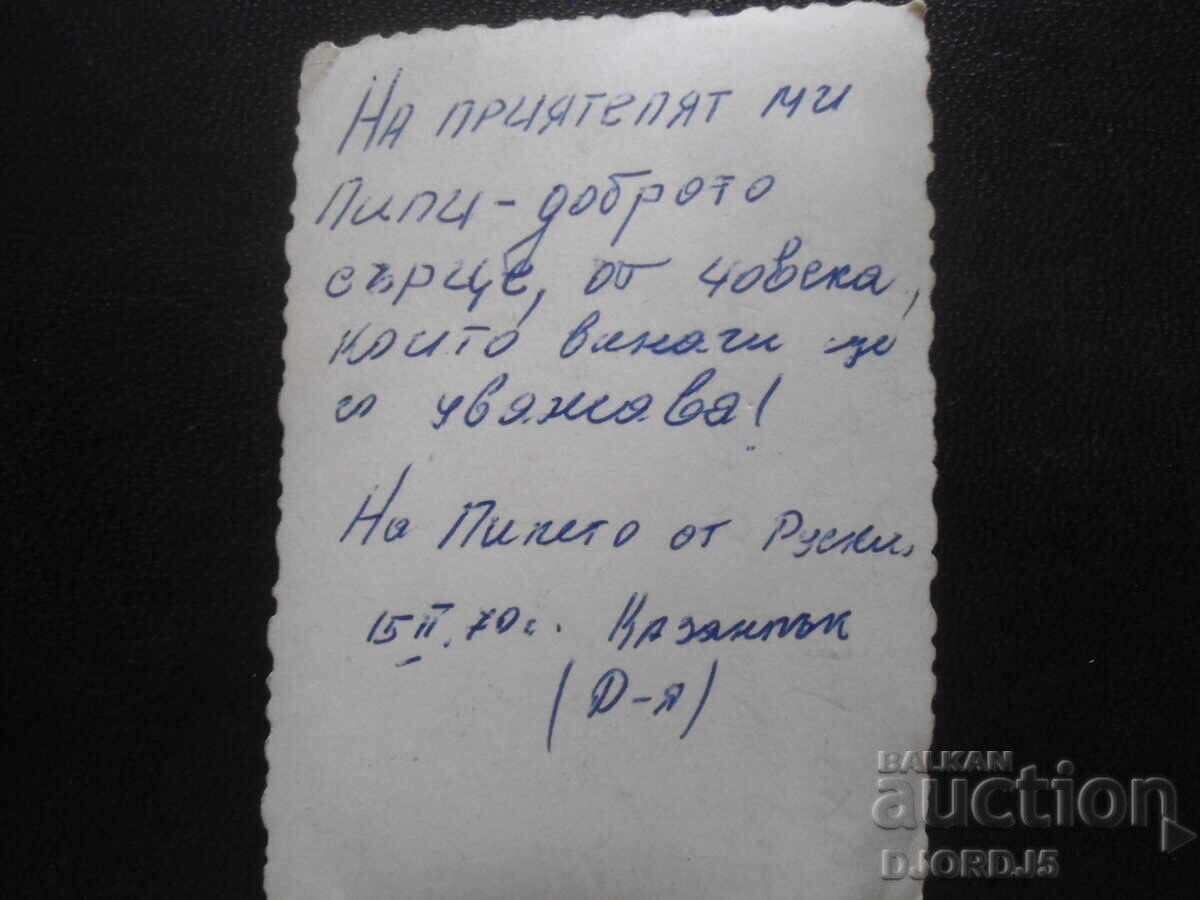 На приятелят ми
Пипи - доброто
сърце, от човека,
който винаги ще
го уважава!
На Пипето от Руски.
15 II. 70 г. Казанлък
(Д-я)
BALKAN
auction
DJORDJ5